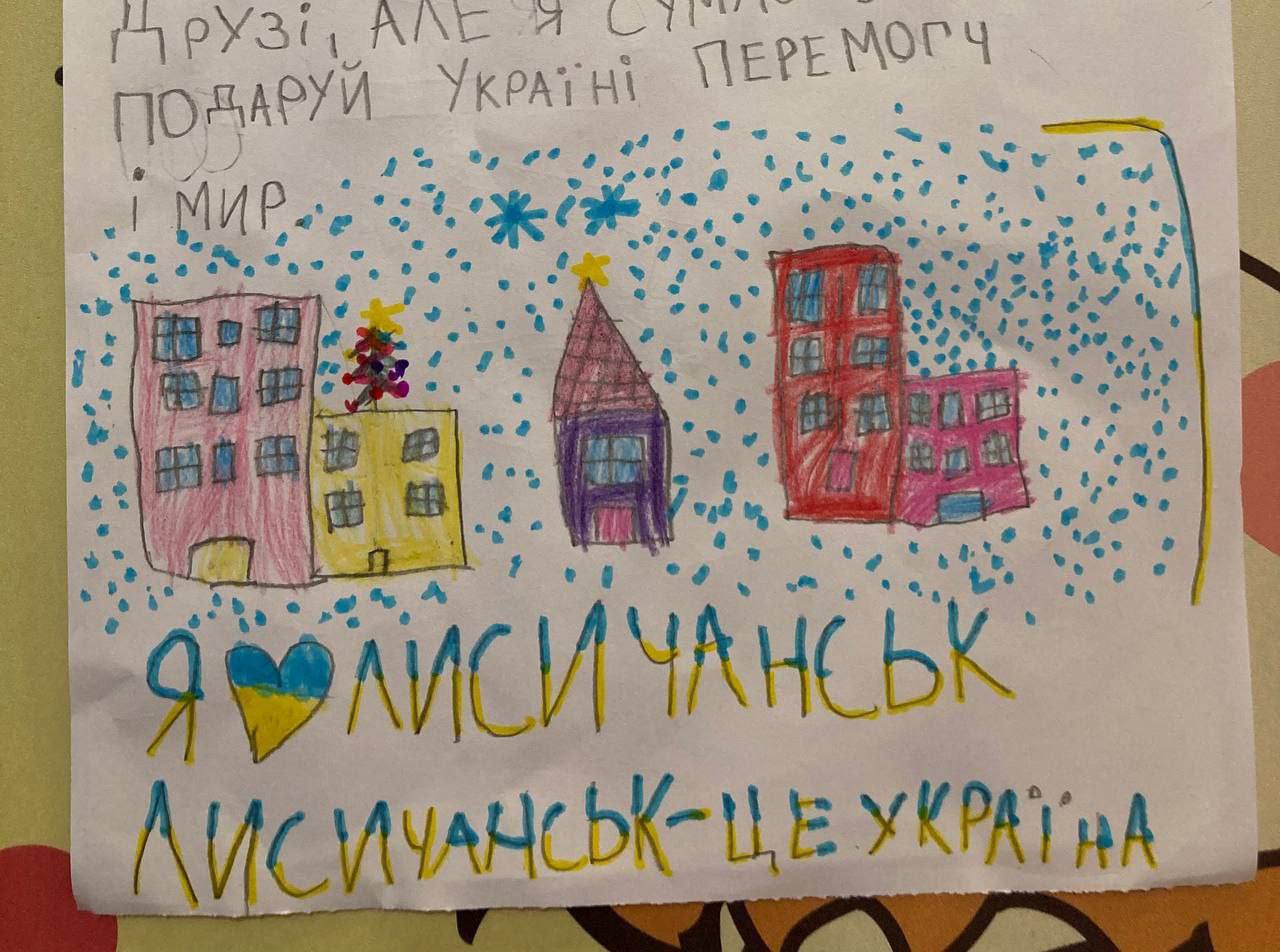 ДРУЗІ, АЛЕ Я
ПОДАРУЙ УКРАЇНІ ПЕРЕМОГУ
І МИР.
Я ЛИСИЧАНСЬК
ЛИСИЧАНСЬК-ЦЕ УКРАЇНА